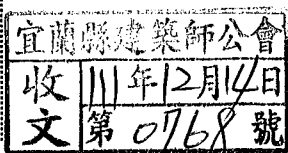 宜蘭縣建築師公會
收文
111年12月14日
第0768號